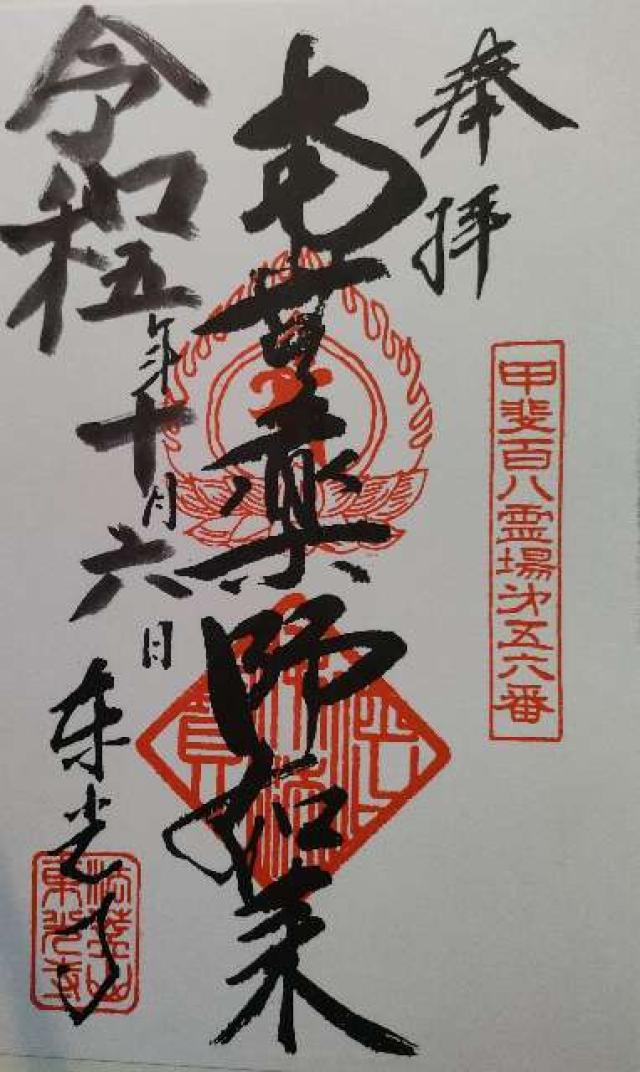 奉拝
甲斐百八霊場㐧五六番
南無薬師如来
令和五年十月六日
東光寺
法蓋山
東光寺